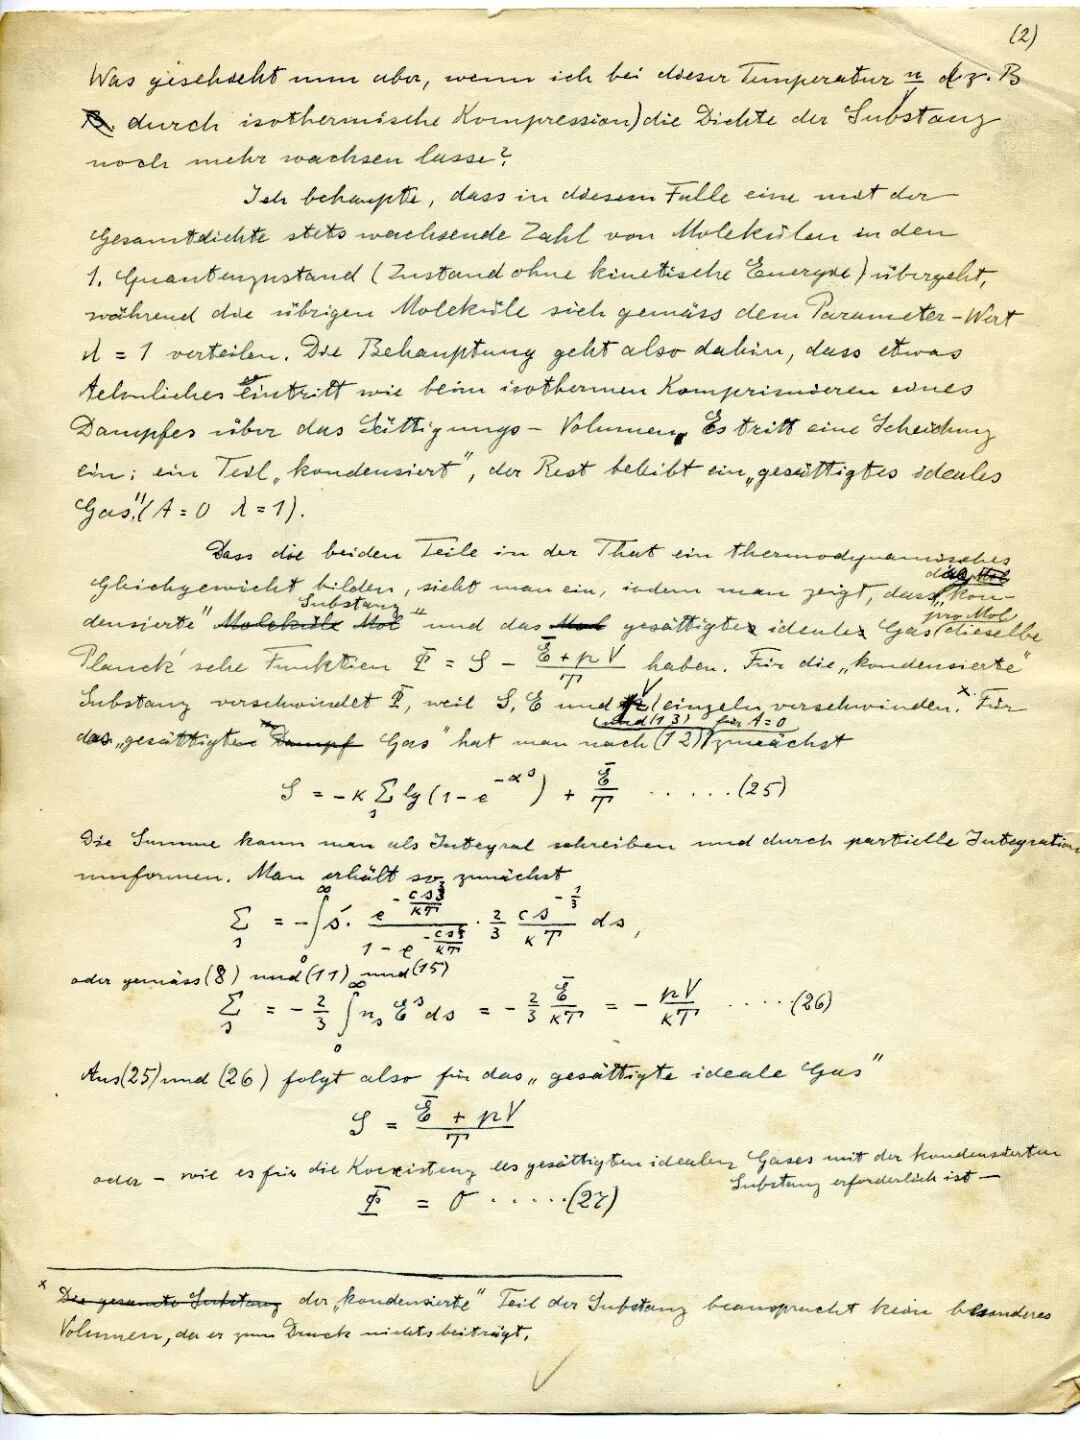 (2)
Was geschieht nun aber, wenn ich bei dieser Temperatur (z. B.
durch isothermische Kompression) die Dichte der Substanz
noch mehr wachsen lasse?
Ich behaupte, dass in diesem Falle eine mit der
Gesamtdichte stets wachsende Zahl von Molekülen in den
1. Quantenzustand (Zustand ohne kinetische Energie) übergeht,
während die übrigen Moleküle sich gemäss dem Parameter-Wert
λ = 1 verteilen. Die Behauptung geht also dahin, dass etwas
Aehnliches eintritt wie beim isothermen Komprimieren eines
Dampfes über das Sättigungs-Volumen. Es tritt eine Scheidung
ein; ein Teil „kondensiert", der Rest bleibt ein „gesättigtes ideales
Gas" (A = 0 λ = 1).
Dass die beiden Teile in der That ein thermodynamisches
Gleichgewicht bilden, sieht man ein, indem man zeigt, dass die „kon-
densierte" Substanz und das gesättigte ideale Gas pro Mol dieselbe
Planck'sche Funktion Φ = S − (Ē + pV)/T haben. Für die „kondensierte"
Substanz verschwindet Φ, weil S, E und V einzeln verschwinden.ˣ Für
das „gesättigte Gas" hat man nach (12) und (13) für A = 0 zunächst
S = −κ Σₛ lg(1 − e^(−αˢ)) + Ē/T ......(25)
Die Summe kann man als Integral schreiben und durch partielle Integration
umformen. Man erhält so zunächst
Σₛ = −∫₀^∞ s · e^(−cs^(2/3)/κT) / (1 − e^(−cs^(2/3)/κT)) · 2/3 cs^(−1/3)/κT ds,
oder gemäss (8) und (11) und (15)
Σₛ = −2/3 ∫₀^∞ nₛ Eˢ ds = −2/3 Ē/κT = −pV/κT .....(26)
Aus (25) und (26) folgt also für das „gesättigte ideale Gas"
S = (Ē + pV)/T
oder – wie es für die Koexistenz des gesättigten idealen Gases mit der kondensierten
Substanz erforderlich ist –
Φ = 0 ......(27)
ˣ Die gesamte Substanz der „kondensierte" Teil der Substanz beansprucht kein besonderes
Volumen, da er zum Druck nichts beiträgt.